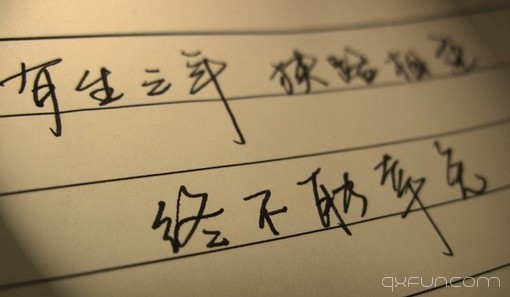 有生之年 狭路相逢
终不能幸免
qxfun.com